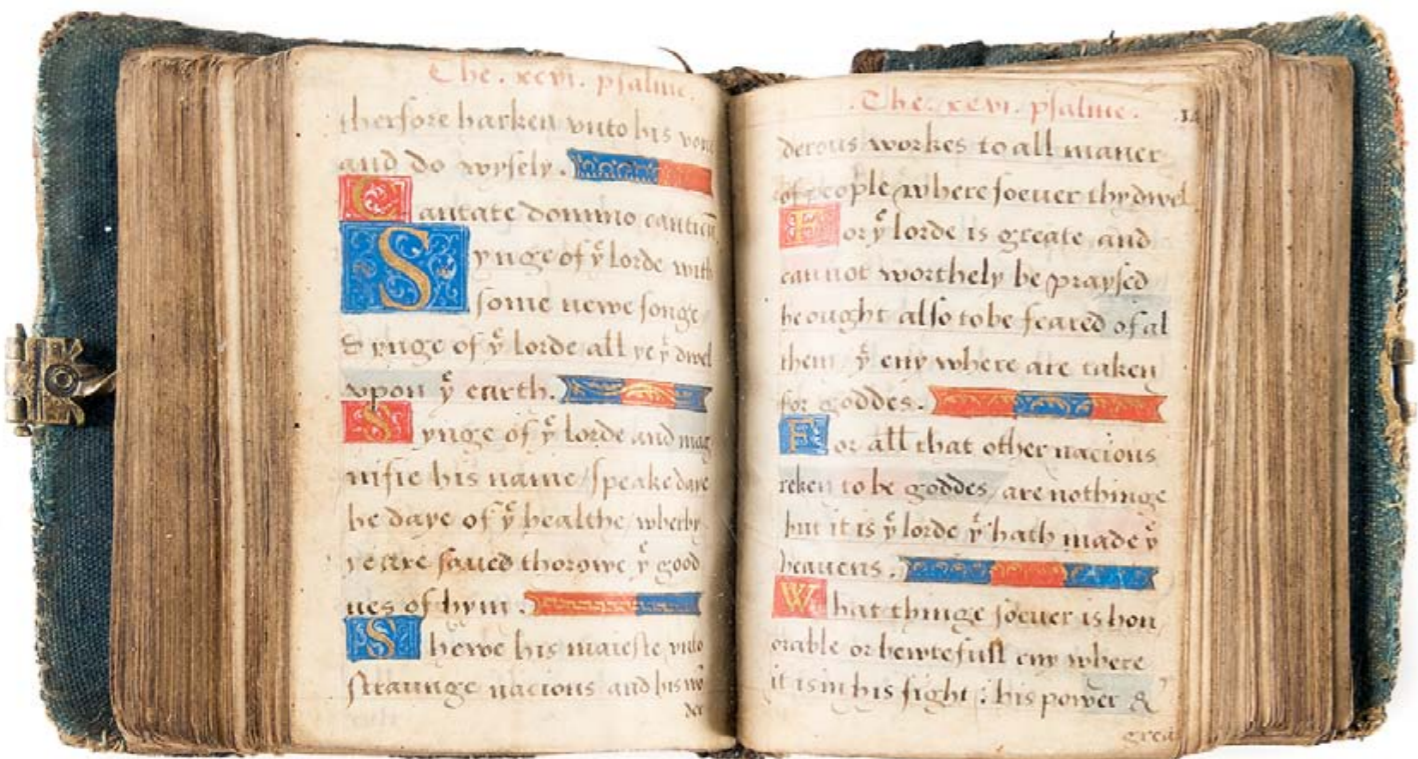 The. xcvi. psalme.
therfore harken vnto his voice
and do wysely.
Cantate domino canticū
Synge of yͤ lorde with
some newe songe
Synge of yͤ lorde all ye yͭ dwel
vpon yͤ earth.
Synge of yͤ lorde and mag
nifie his name / speake daye
be daye of yͤ healthe / wherby
ye are saued thorowe yͤ good
nes of hym.
Shewe his maieste vnto
straunge nacions and his wō
der
The. xcvi. psalme.
derous workes to all maner
of people / where soeuer thy dwel
For yͤ lorde is greate, and
can not worthely be praysed
he ought also to be feared of al
them yͭ eny where are taken
for goddes.
For all that other nacions
reken to be goddes / are nothinge
but it is yͤ lorde yͭ hath made yͤ
heauens.
What thinge soeuer is hon
orable or bewtefull eny where
it is in his sight : his power &
grea